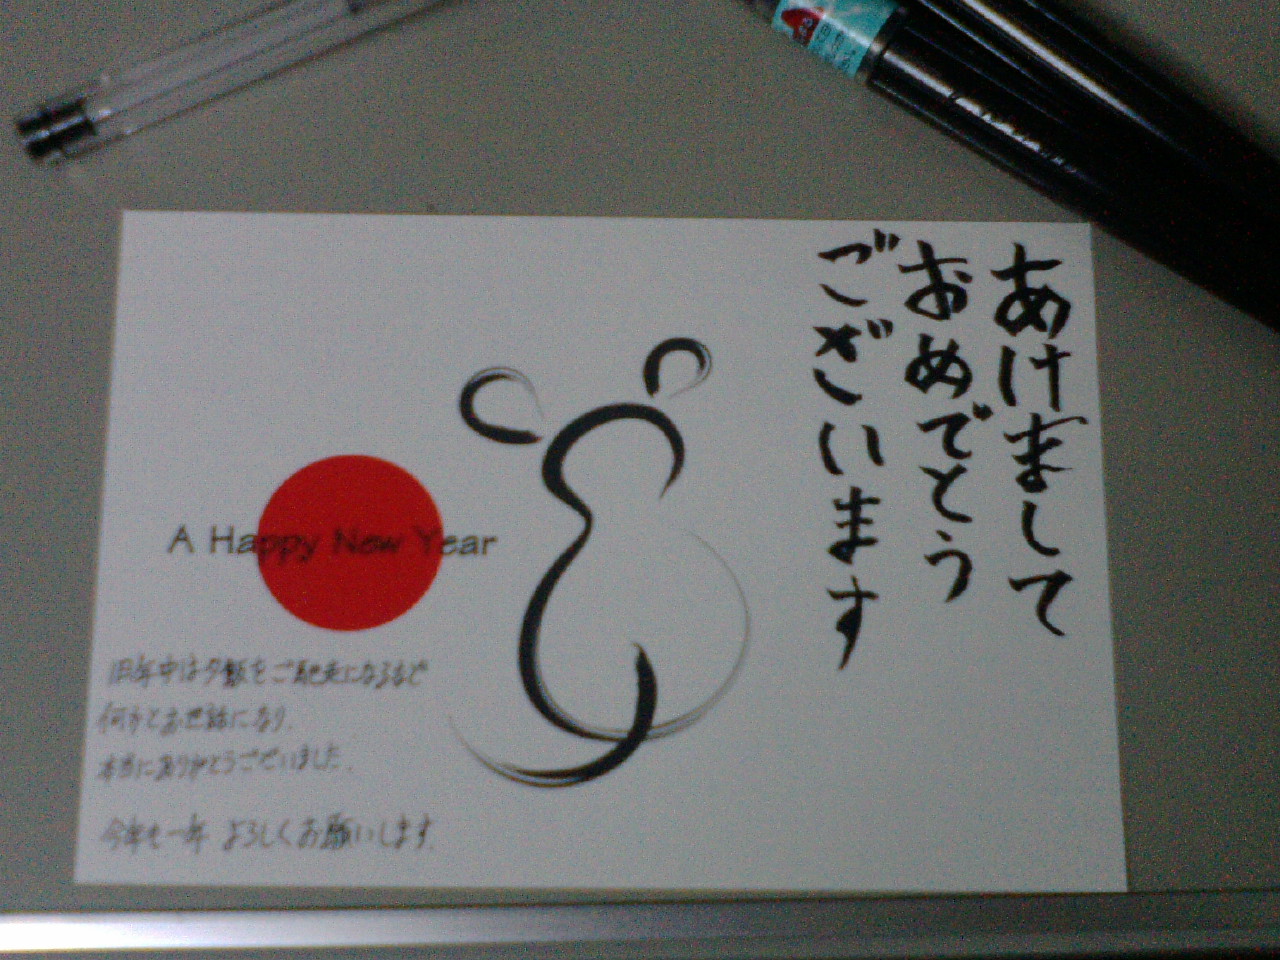 あけまして
おめでとう
ございます
A Happy New Year
旧年中は夕飯をご馳走になるなど
何かとお世話になり、
本当にありがとうございました。
今年も一年 よろしくお願いします。